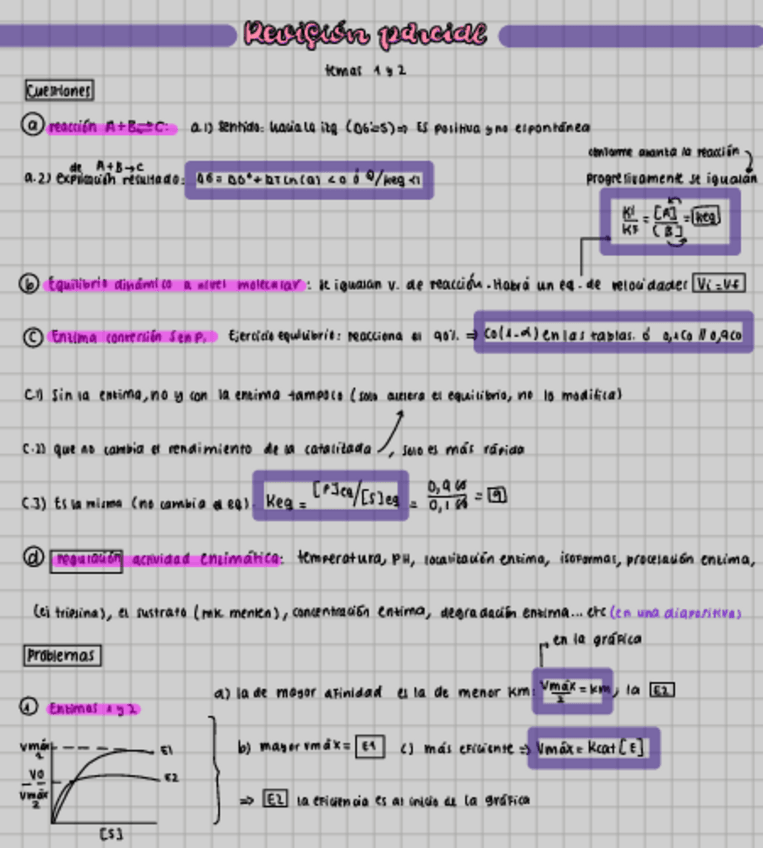 Revisión parcial
temas 1 y 2
Cuestiones
a reacción A+B⇌C: a.1) Sentido: hacia la izq (ΔG'=5) ⇒ Es positiva y no espontánea
conforme avanza la reacción
de A+B→C
a.2) Explicación resultado: ΔG = ΔG°+RTLn(Q) <0 ó Q/Keq <1
progresivamente se igualan
Ki/Kf = [A]/[B] = Keq
b Equilibrio dinámico a nivel molecular: se igualan v. de reacción. Habrá un eq. de velocidades Vi=Vf
c Enzima conversión S en P. Ejercicio equilibrio: reacciona el 90%. ⇒ Co(1-α) en las tablas. ó 0,1Co // 0,9Co
C.1) Sin la enzima, no y con la enzima tampoco (solo acelera el equilibrio, no lo modifica)
C.2) que no cambia el rendimiento de la catalizada, solo es más rápida
C.3) Es la misma (no cambia el eq). Keq = [P]eq/[S]eq = 0,9 Co/0,1 Co = 9
d regulación actividad enzimática: temperatura, PH, localización enzima, isoformas, procelación enzima,
(ej tripsina), el sustrato (mk. menten), concentración enzima, degradación enzima... etc (en una diapositiva)
Problemas
en la gráfica
a) la de mayor afinidad es la de menor Km: Vmáx/2 = Km, la E2
1 Enzimas 1 y 2
b) mayor vmáx = E1 c) más eficiente ⇒ Vmáx = Kcat [E]
⇒ E2 la eficiencia es al inicio de la gráfica
Vmáx
2
E1
V0
E2
Vmáx
2
[S]